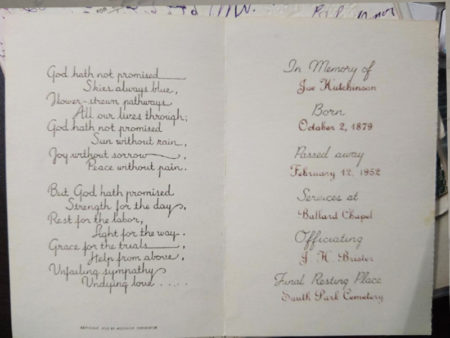 God hath not promised
Skies always blue,
Flower-strewn pathways
All our lives through;
God hath not promised
Sun without rain,
Joy without sorrow,
Peace without pain.
But God hath promised
Strength for the day,
Rest for the labor,
Light for the way.
Grace for the trials,
Help from above,
Unfailing sympathy
Undying love.....
In Memory of
Joe Hutchinson
Born
October 2, 1879
Passed away
February 12, 1952
Services at
Ballard Chapel
Officiating
J. H. Brister
Final Resting Place
South Park Cemetery